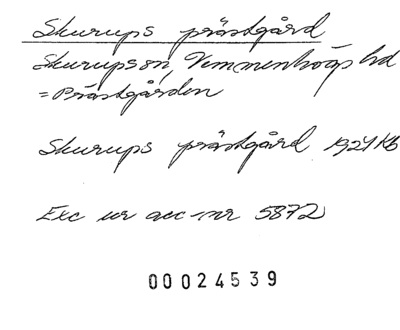 Skurups prästgård
Skurups sn, Vemmenhögs hd
= Prästgården
Skurups prästgård 1924 Kb
Exc ur acc-nr 5872
00024539